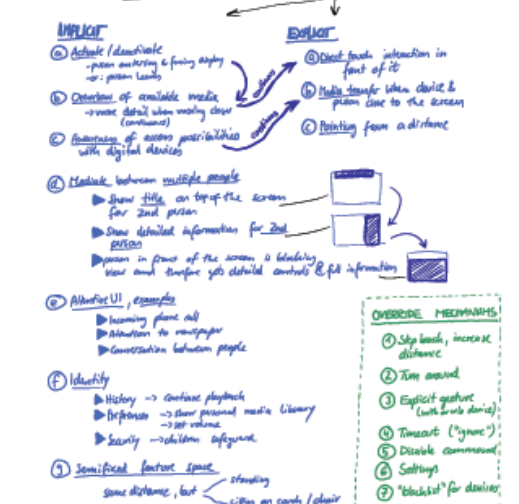 IMPLICIT
(a) Activate / deactivate
- person entering & facing display
- or: person leaves
(b) Overview of available media
→ more detail when moving closer
(continuous)
(c) Awareness of access possibilities
with digital devices
continuous
continuous
EXPLICIT
(a) Direct touch interaction in
front of it
(b) Media transfer when device &
person close to the screen
(c) Pointing from a distance
(d) Mediate between multiple people
▶ Show title on top of the screen
for 2nd person
▶ Show detailed information for 2nd
person
▶ person in front of the screen is blocking
view and therefore gets detailed controls & full information
(e) Attentive UI, examples
▶ Incoming phone call
▶ Attention to newspaper
▶ Conversation between people
(f) Identity
▶ History → continue playback
▶ Preferences → show personal media library
→ set volume
▶ Security → children safeguard
(g) Semifixed feature space
same distance, but
standing
sitting on couch / chair
OVERRIDE MECHANISMS
(1) Step back, increase
distance
(2) Turn around
(3) Explicit gesture
(with or w/o device)
(4) Timeout ("ignore")
(5) Disable command
(6) Settings
(7) "blacklist" for devices